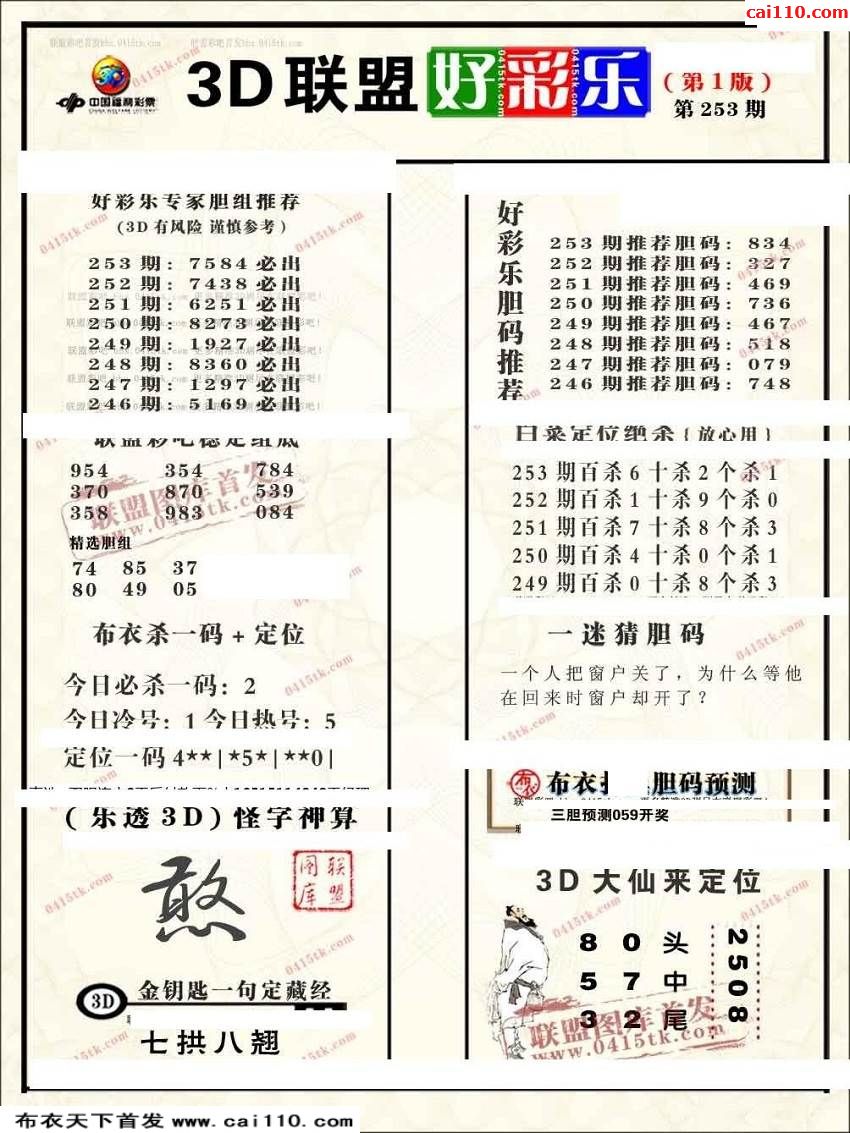 cai110.com
联盟彩吧首发bbs.0415tk.com
中国福利彩票
CHINA WELFARE LOTTERY
3D联盟好彩乐
0415tk.com
(第1版)
第253期
好彩乐专家胆组推荐
(3D有风险 谨慎参考)
253期: 7584必出
252期: 7438必出
251期: 6251必出
250期: 8273必出
249期: 1927必出
248期: 8360必出
247期: 1297必出
246期: 5169必出
联盟彩吧稳定组底
954 354 784
370 870 539
358 983 084
联盟图库首发
www.0415tk.com
精选胆组
74 85 37
80 49 05
布衣杀一码+定位
今日必杀一码: 2
今日冷号: 1 今日热号: 5
定位一码4**|*5*|**0|
(乐透3D)怪字神算
憨
联盟图库
3D 金钥匙一句定藏经
七拱八翘
好彩乐胆码推荐
253期推荐胆码: 834
252期推荐胆码: 327
251期推荐胆码: 469
250期推荐胆码: 736
249期推荐胆码: 467
248期推荐胆码: 518
247期推荐胆码: 079
246期推荐胆码: 748
白菜定位绝杀{放心用}
253期百杀6十杀2个杀1
252期百杀1十杀9个杀0
251期百杀7十杀8个杀3
250期百杀4十杀0个杀1
249期百杀0十杀8个杀3
一迷猜胆码
一个人把窗户关了，为什么等他
在回来时窗户却开了？
布衣
胆码预测
三胆预测059开奖
3D大仙来定位
8 0 头
5 7 中
3 2 尾
2508
联盟图库首发
www.0415tk.com
布衣天下首发 www.cai110.com